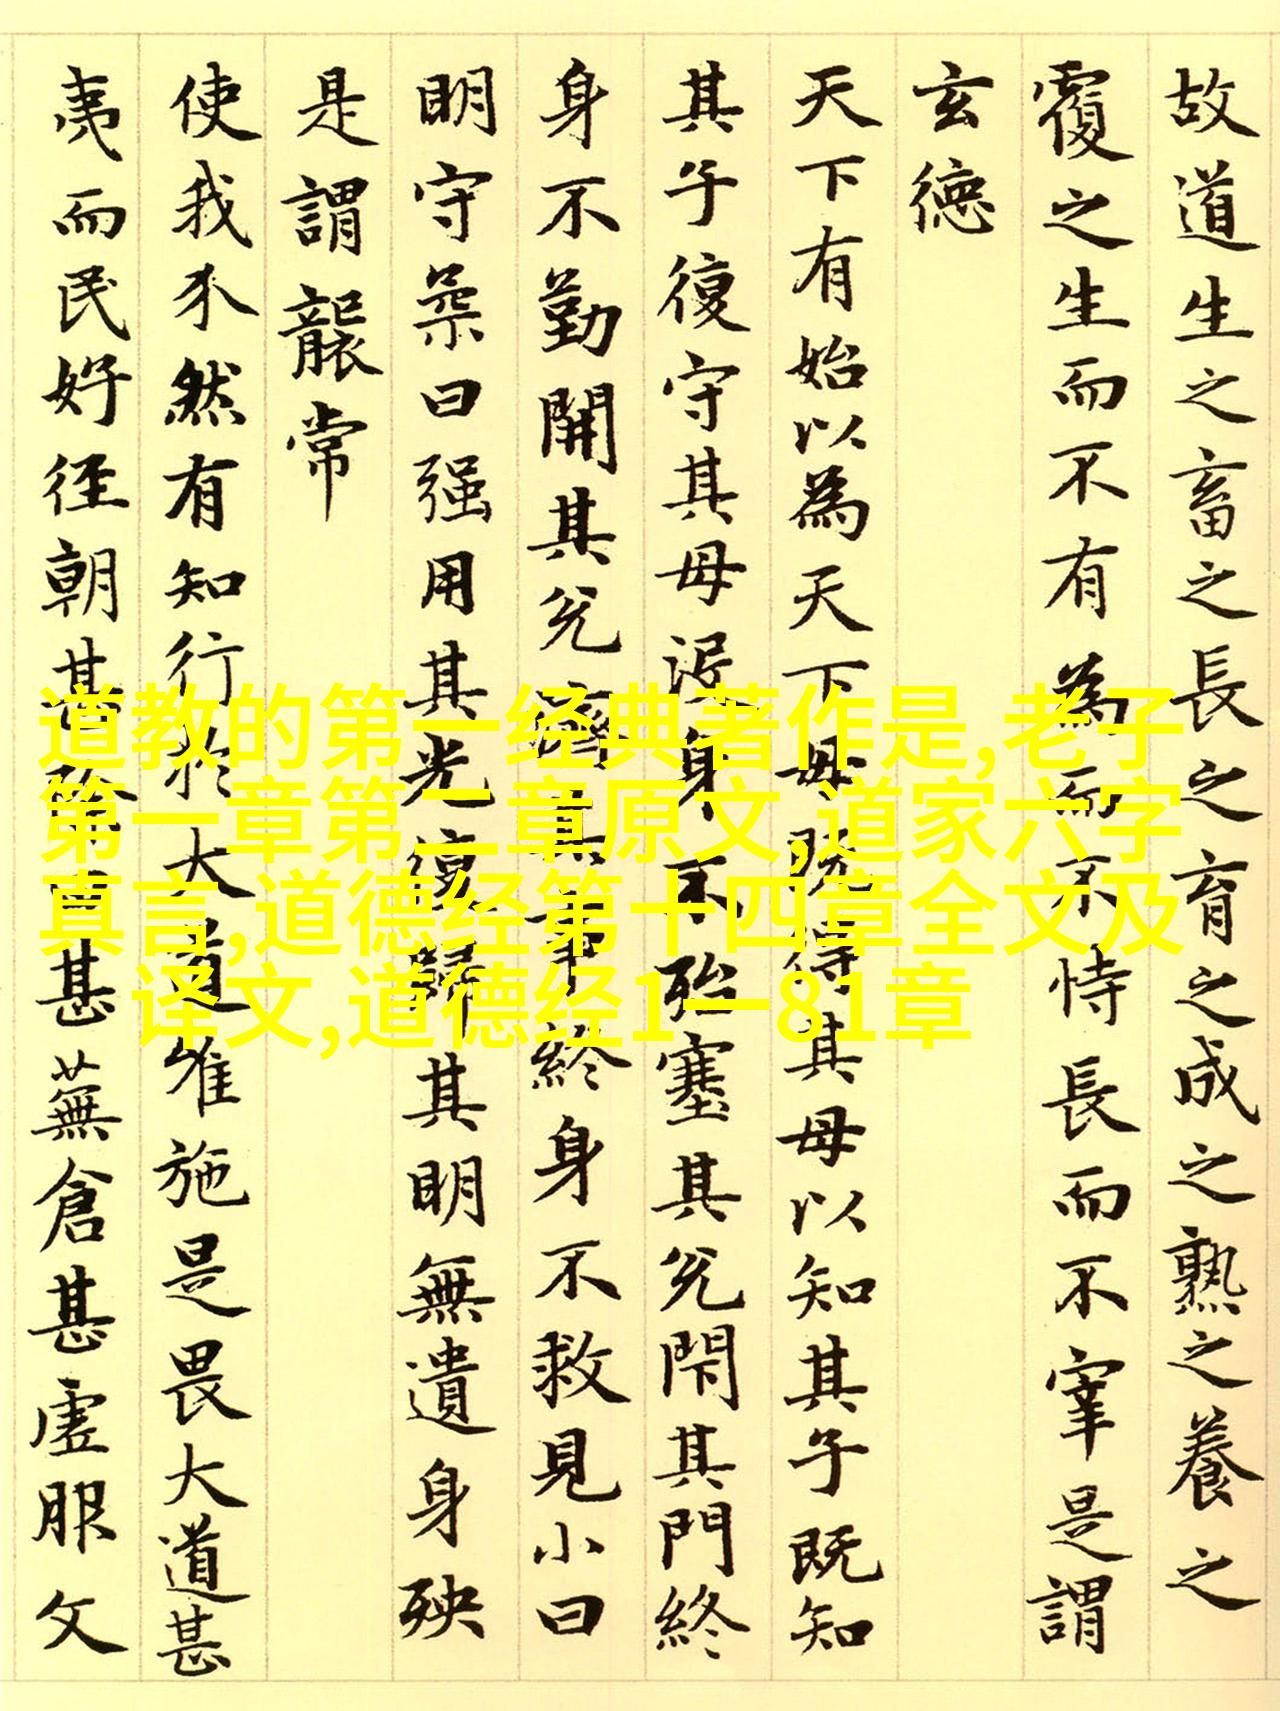 故道生之畜之長之育之成之熟之養之
覆之生而不有為而不恃長而不宰是謂
玄德
天下有始以為天下母既得其母以知其子既知
其子復守其母没身不殆塞其兊閇其門終
身不勤開其兊濟其事終身不救見小曰
明守柔曰强用其光復歸其明無遺身殃
是謂襲常
使我介然有知行於大道唯施是畏大道甚
夷而民好徑朝甚除田甚蕪倉甚虚服文
道教的第一经典著作是,老子
第一章第二章原文,道家六字
真言,道德经第十四章全文及
译文,道德经1一81章